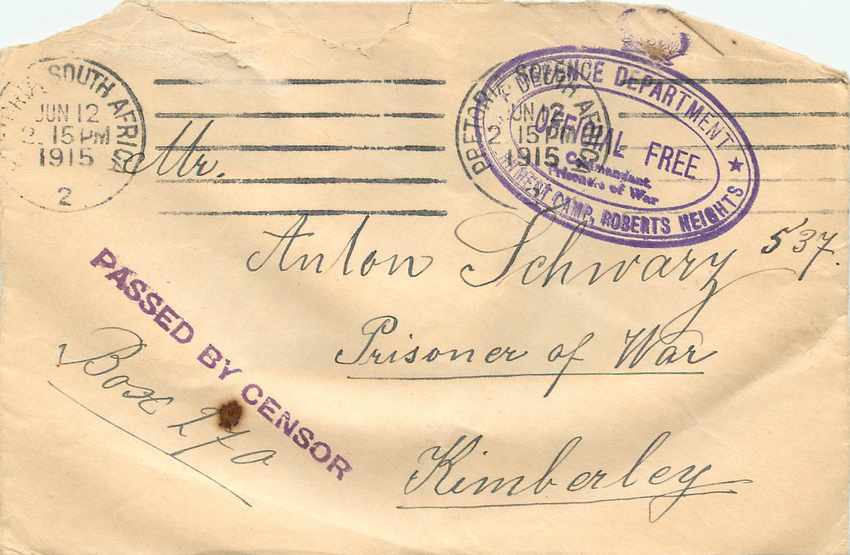 PRETORIA SOUTH AFRICA
JUN 12
2. 15 PM
1915
2
PRETORIA SOUTH AFRICA
JUN 12
2 15 PM
1915
DEFENCE DEPARTMENT
OFFICIAL FREE
Commandant.
Prisoners of War
CAMP, ROBERTS HEIGHTS
Mr.
Anton Schwarz 537.
Prisoner of War
Kimberley
PASSED BY CENSOR
Box 270